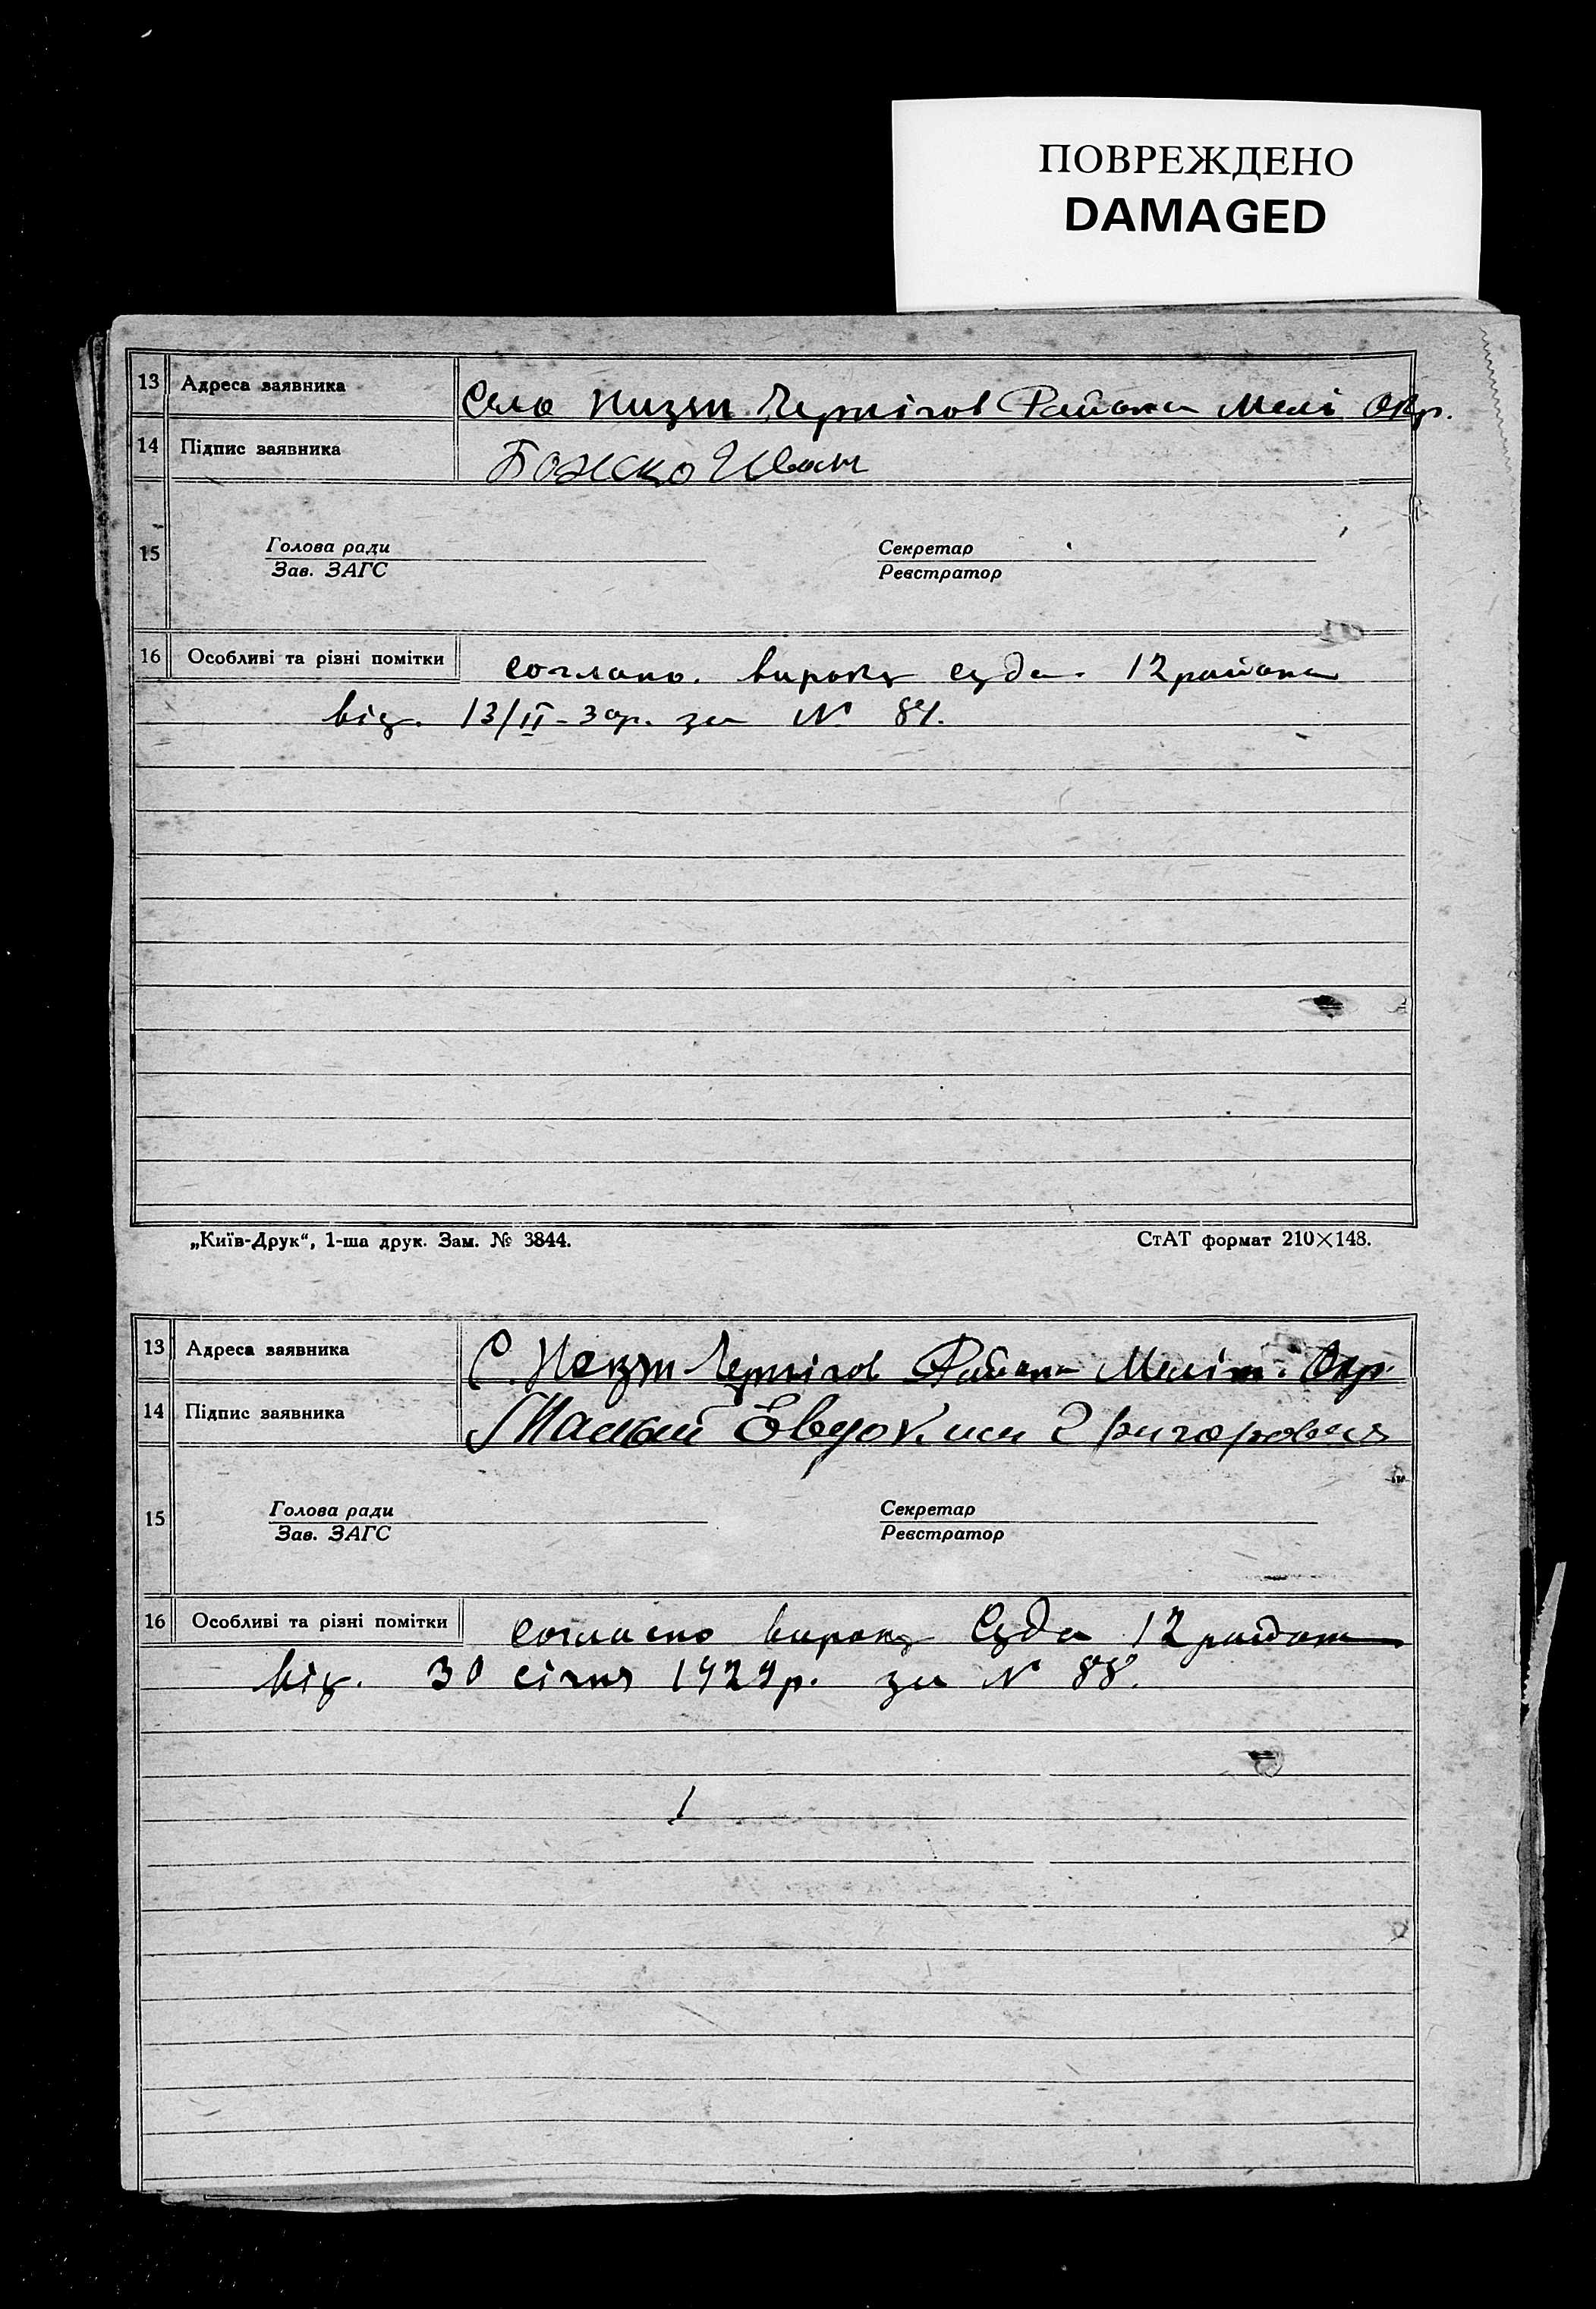 ПОВРЕЖДЕНО
DAMAGED
13 Адреса заявника Село Низян Чернігов Района Мелі Окр.
14 Підпис заявника Божко Иван
15 Голова ради Секретар
Зав. ЗАГС Реєстратор
16 Особливі та різні помітки согласно. вироку суда. 12 района
від. 13/II-30р. за № 84.
„Київ-Друк“, 1-ша друк. Зам. № 3844. СтАТ формат 210×148.
13 Адреса заявника С. Низян Чернігов Района Меліт. Окр
14 Підпис заявника Евдоким Григорович
15 Голова ради Секретар
Зав. ЗАГС Реєстратор
16 Особливі та різні помітки согласно вироку Суда 12 района
від. 30 січня 1929р. за № 88.